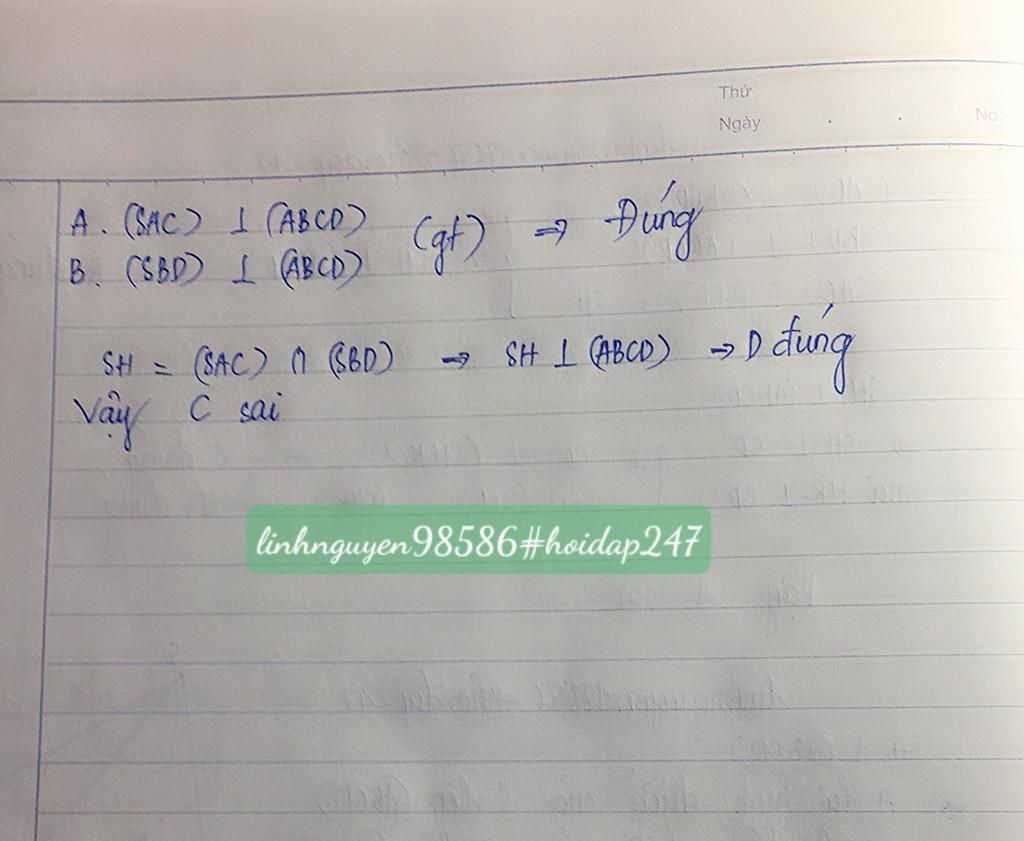 Thứ
Ngày . . No.
A. (SAC) ⊥ (ABCD)
(gt) ⇒ Đúng
B. (SBD) ⊥ (ABCD)
SH = (SAC) ∩ (SBD) ⇒ SH ⊥ (ABCD) ⇒ D đúng
Vậy C sai
linhnguyen98586#hoidap247